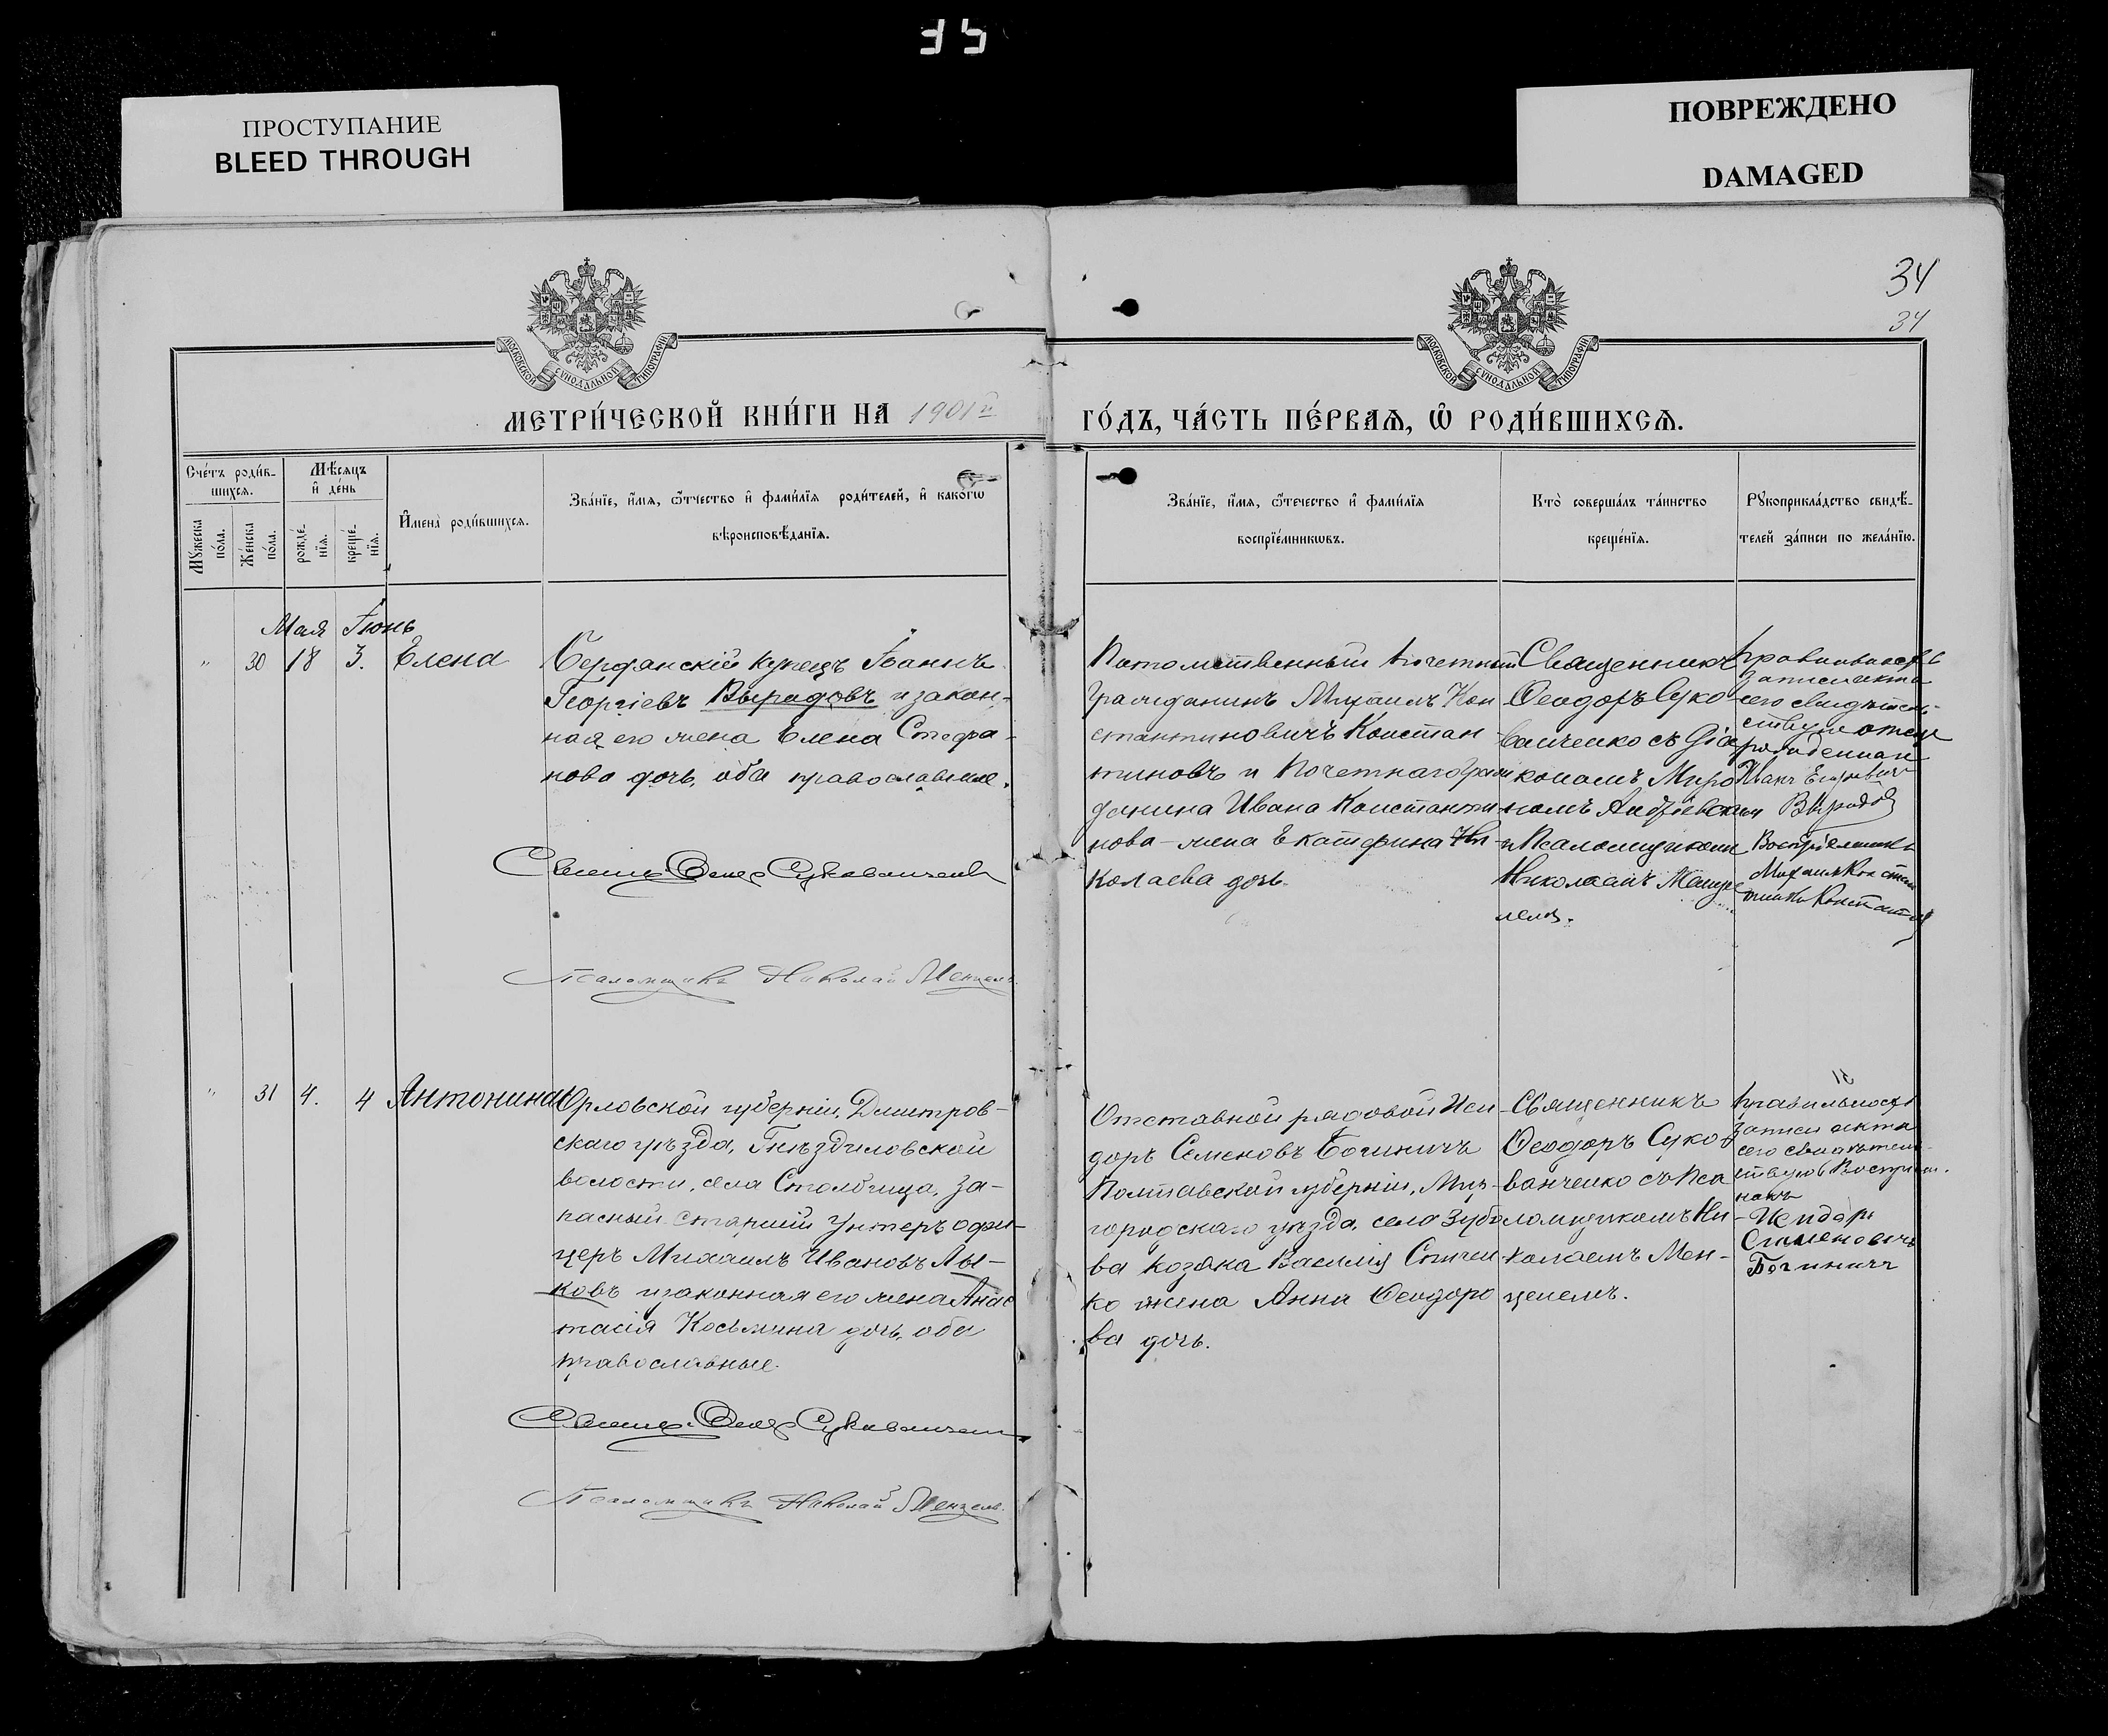 ЭЅ
ПРОСТУПАНИЕ
BLEED THROUGH
ПОВРЕЖДЕНО
DAMAGED
34
34
МОСКОВСКОЙ СѴНОДАЛЬНОЙ ТИПОГРАФІИ
МОСКОВСКОЙ СѴНОДАЛЬНОЙ ТИПОГРАФІИ
МЕТРИ́ЧЕСКОЙ КНИ́ГИ НА 1901й
ГО́ДЪ, ЧА́СТЬ ПЕ́РВАѦ, Ѡ РОДИ́ВШИХСѦ.
Сче́тъ роди́в-
шихсѧ.
Мѣ́сѧцъ
и де́нь
Мꙋжеска
по́ла.
Же́нска
по́ла.
рожде́-
нїѧ.
креще́-
нїѧ.
Имена̀ роди́вшихсѧ.
Зва́нїе, и́мѧ, ѻ́тчество и фами́лїѧ роди́телей, и како́гѡ
вѣроисповѣ́данїѧ.
Зва́нїе, и́мѧ, ѻ́течество и фами́лїѧ
воспрїе́мникѡвъ.
Кто̀ соверша́лъ та́инство
креще́нїѧ.
Рꙋкоприкла́дство свидѣ́-
телей за́писи по жела́нїю.
Мая Іюнь
" 30 18 3. Елена
Бердянскій купецъ Іоаннъ
Георгіевъ Выродовъ и закон-
ная его жена Елена Стефа-
нова дочь, оба православные.
Священ. Ѳеод. Сукованченко
Псаломщикъ Николай Менцель
Потомственный почетный
гражданинъ Михаилъ Кон
стантиновичъ Констан-
тиновъ и Почетнаго граж
данина Ивана Константи-
нова - жена Екатерина Ни-
колаева дочь.
Священникъ
Ѳеодоръ Суко-
ванченко съ Діа
кономъ Миро
номъ Андріевским
и Псаломщиком
Николаемъ Менце
лемъ.
Правильность
записи акта
сего свидѣтель-
ствую отец
рожденной
Иванъ Егоровичъ
Выродов
Воспріемникъ
Михаилъ Констан
тинов Константинов
" 31 4. 4 Антонина
Орловской губерніи, Димитров-
скаго уѣзда, Гнѣздиловской
волости, села Столбища, за-
пасный старшій унтеръ офи-
церъ Михаилъ Ивановъ Лы-
ковъ и законная его жена Анас
тасія Косьмина дочь, оба
православные.
Священ. Ѳеод. Сукованченко
Псаломщикъ Николай Менцель.
Отставной рядовой Иси-
доръ Семеновъ Богиничъ
Полтавской губерніи, Мир-
городскаго уѣзда, села Зубо
ва козака Василія Спичен-
ко жена Анна Ѳеодоро
ва дочь.
Священникъ
Ѳеодоръ Суко-
ванченко съ Пса
ломщикомъ Ни-
колаемъ Мен-
целемъ.
Правильность
записи акта
сего свидѣтель-
ствую Воспріем-
никъ
Исидоръ
Сименовичъ
Богиничъ